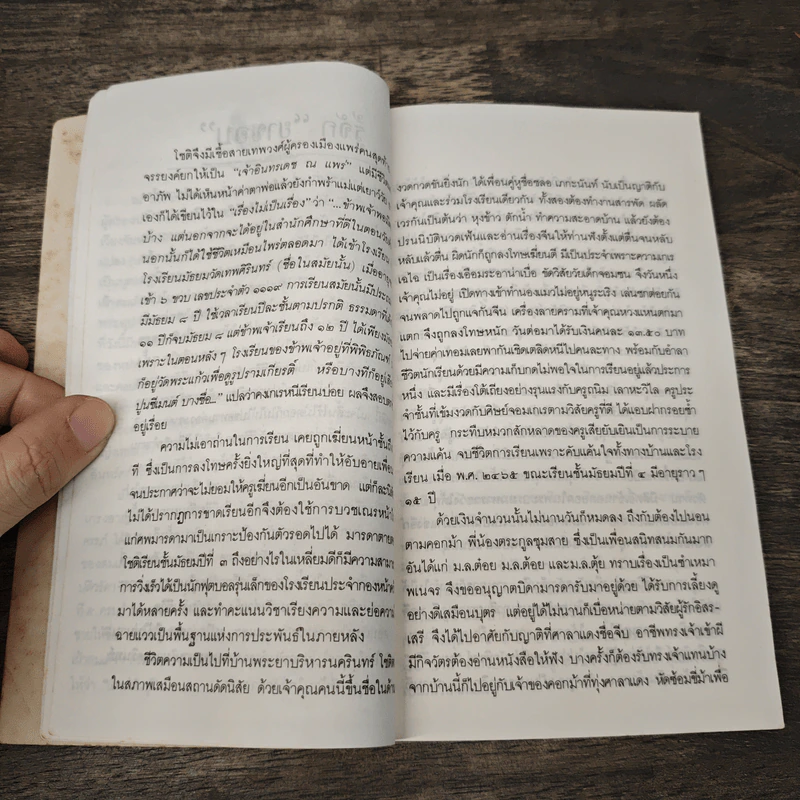 โชติจึงมีเชื้อสายเทพวงศ์ผู้ครองเมืองแพร่คนสุดท้
จรรยงค์ยกให้เป็น "เจ้าอินทรเดช ณ แพร่" แต่มีชีวิต
อาภัพ ไม่ได้เห็นหน้าค่าตาพ่อแล้วยังกำพร้าแม่แต่เยาว์วัย
เองก็ได้เขียนไว้ใน "เรื่องไม่เป็นเรื่อง" ว่า "...ข้าพเจ้าพอ
บ้าง แต่นอกจากจะได้อยู่ในสำนักศึกษาที่ดีในตอนวัน
นอกนั้นก็ได้ใช้ชีวิตเหมือนไพร่ตลอดมา ได้เข้าโรงเรียน
โรงเรียนมัธยมวัดเทพศิรินทร์ (ชื่อในสมัยนั้น) เมื่ออายุ
เข้า ๖ ขวบ เลขประจำตัว ๑๑๑๙ การเรียนสมัยนั้นมีประถม
มีมัธยม ๘ ปี ใช้เวลาเรียนปีละชั้นตามปรกติ ธรรมดาที่
๑๑ ปีก็จบมัธยม ๘ แต่ข้าพเจ้าเรียนถึง ๑๒ ปี ได้เพียงมัธ
เพราะในตอนหลังๆ โรงเรียนของข้าพเจ้าอยู่ที่พิพิธภัณฑ์
ก็อยู่วัดพระแก้วเพื่อดูรูปรามเกียรติ์ หรือบางทีก็อยู่
ปูนซีเมนต์ บางซื่อ..." แปลว่าคงเกเรหนีเรียนบ่อย ผลจึงสอบ
อยู่เรื่อย
ความไม่เอาถ่านในการเรียน เคยถูกเฆี่ยนหน้าชั้น
ที ซึ่งเป็นการลงโทษครั้งยิ่งใหญ่ที่สุดที่ทำให้อับอายเพื่อน
จนประกาศว่าจะไม่ยอมให้ครูเฆี่ยนอีกเป็นอันขาด แต่ก็ละนิ
ไม่ได้ปรากฏการขาดเรียนอีกจึงต้องใช้การบวชเณรหน้า
แก่ศพมารดามาเป็นเกราะป้องกันตัวรอดไปได้ มารดาตาย
โชติเรียนชั้นมัธยมปีที่ ๓ ถึงอย่างไรในเหลี่ยมดีก็มีความสามา
การวิ่งเร็วได้เป็นนักฟุตบอลรุ่นเล็กของโรงเรียนประจำกองหน้า
มาได้หลายครั้ง และทำคะแนนวิชาเรียงความและย่อความ
ฉายแววเป็นพื้นฐานแห่งการประพันธ์ในภายหลัง
ชีวิตความเป็นไปที่บ้านพระยาบริหารนครินทร์ โชติ
ในสภาพเสมือนสถานดัดนิสัย ด้วยเจ้าคุณคนนี้ขึ้นชื่อในด้า
งวดกวดขันยิ่งนัก ได้เพื่อนคู่หูชื่อชลอ เภกะนันท์ นับเป็นญาติกับ
เจ้าคุณและร่วมโรงเรียนเดียวกัน ทั้งสองต้องทำงานสารพัด ผลัด
เวรกันเป็นต้นว่า หุงข้าว ตักน้ำ ทำความสะอาดบ้าน แล้วยังต้อง
ปรนนิบัตินวดเฟ้นและอ่านเรื่องจีนให้ท่านฟังตั้งแต่ตื่นจนหลับ
หลับแล้วตื่น ผิดนักก็ถูกลงโทษเฆี่ยนตี มีเป็นประจำเพราะความเกเร
เอไอ เป็นเรื่องเอือมระอาน่าเบื่อ ขัดวิสัยวัยเด็กจอมซน จึงวันหนึ่ง
เจ้าคุณไม่อยู่ เปิดทางเข้าทำนองแมวไม่อยู่หนูระเริง เล่นชกต่อยกัน
จนพลาดไปถูกแจกันจีน เครื่องลายครามที่เจ้าคุณหวงแหนตกมา
แตก จึงถูกลงโทษหนัก วันต่อมาได้รับเงินคนละ ๑๓.๕๐ บาท
ไปจ่ายค่าเทอมเลยพากันเชิดเตลิดหนีไปคนละทาง พร้อมกับอำลา
ชีวิตนักเรียนด้วยมีความเก็บกดไม่พอใจในการเรียนอยู่แล้วประการ
หนึ่ง และมีเรื่องโต้เถียงอย่างรุนแรงกับครูถนิม เลาหะวิไล ครูประ
จำชั้นที่เข้มงวดกับศิษย์จอมเกเรตามวิสัยครูที่ดี ได้แอบฝากรอยช้ำ
ไว้กับครู กระทืบหมวกสักหลาดของครูเสียยับเยินเป็นการระบาย
ความแค้น จบชีวิตการเรียนเพราะคับแค้นใจทั้งทางบ้านและโรง
เรียน เมื่อ พ.ศ. ๒๔๖๕ ขณะเรียนชั้นมัธยมปีที่ ๔ มีอายุราวๆ
๑๕ ปี
ด้วยเงินจำนวนนั้นไม่นานวันก็หมดลง ถึงกับต้องไปนอน
ตามคอกม้า พี่น้องตระกูลชุมสาย ซึ่งเป็นเพื่อนสนิทสนมกันมาก
อันได้แก่ ม.ล.ต้อย ม.ล.ต้อย และม.ล.ตุ้ย ทราบเรื่องเป็นข้าเหมา
พเนจร จึงขออนุญาตบิดามารดารับมาอยู่ด้วย ได้รับการเลี้ยงดู
อย่างดีเสมือนบุตร แต่อยู่ได้ไม่นานก็เบื่อหน่ายตามวิสัยผู้รักอิสร-
เสรี จึงได้ไปอาศัยกับญาติที่ศาลาแดงชื่อจีบ อาชีพทรงเจ้าเข้าผี
มีกิจวัตรต้องอ่านหนังสือให้ฟัง บางครั้งก็ต้องรับทรงเจ้าแทนบ้าง
จากบ้านนี้ก็ไปอยู่กับเจ้าของคอกม้าที่ทุ่งศาลาแดง หัดซ้อมขี่ม้าเพื่อ